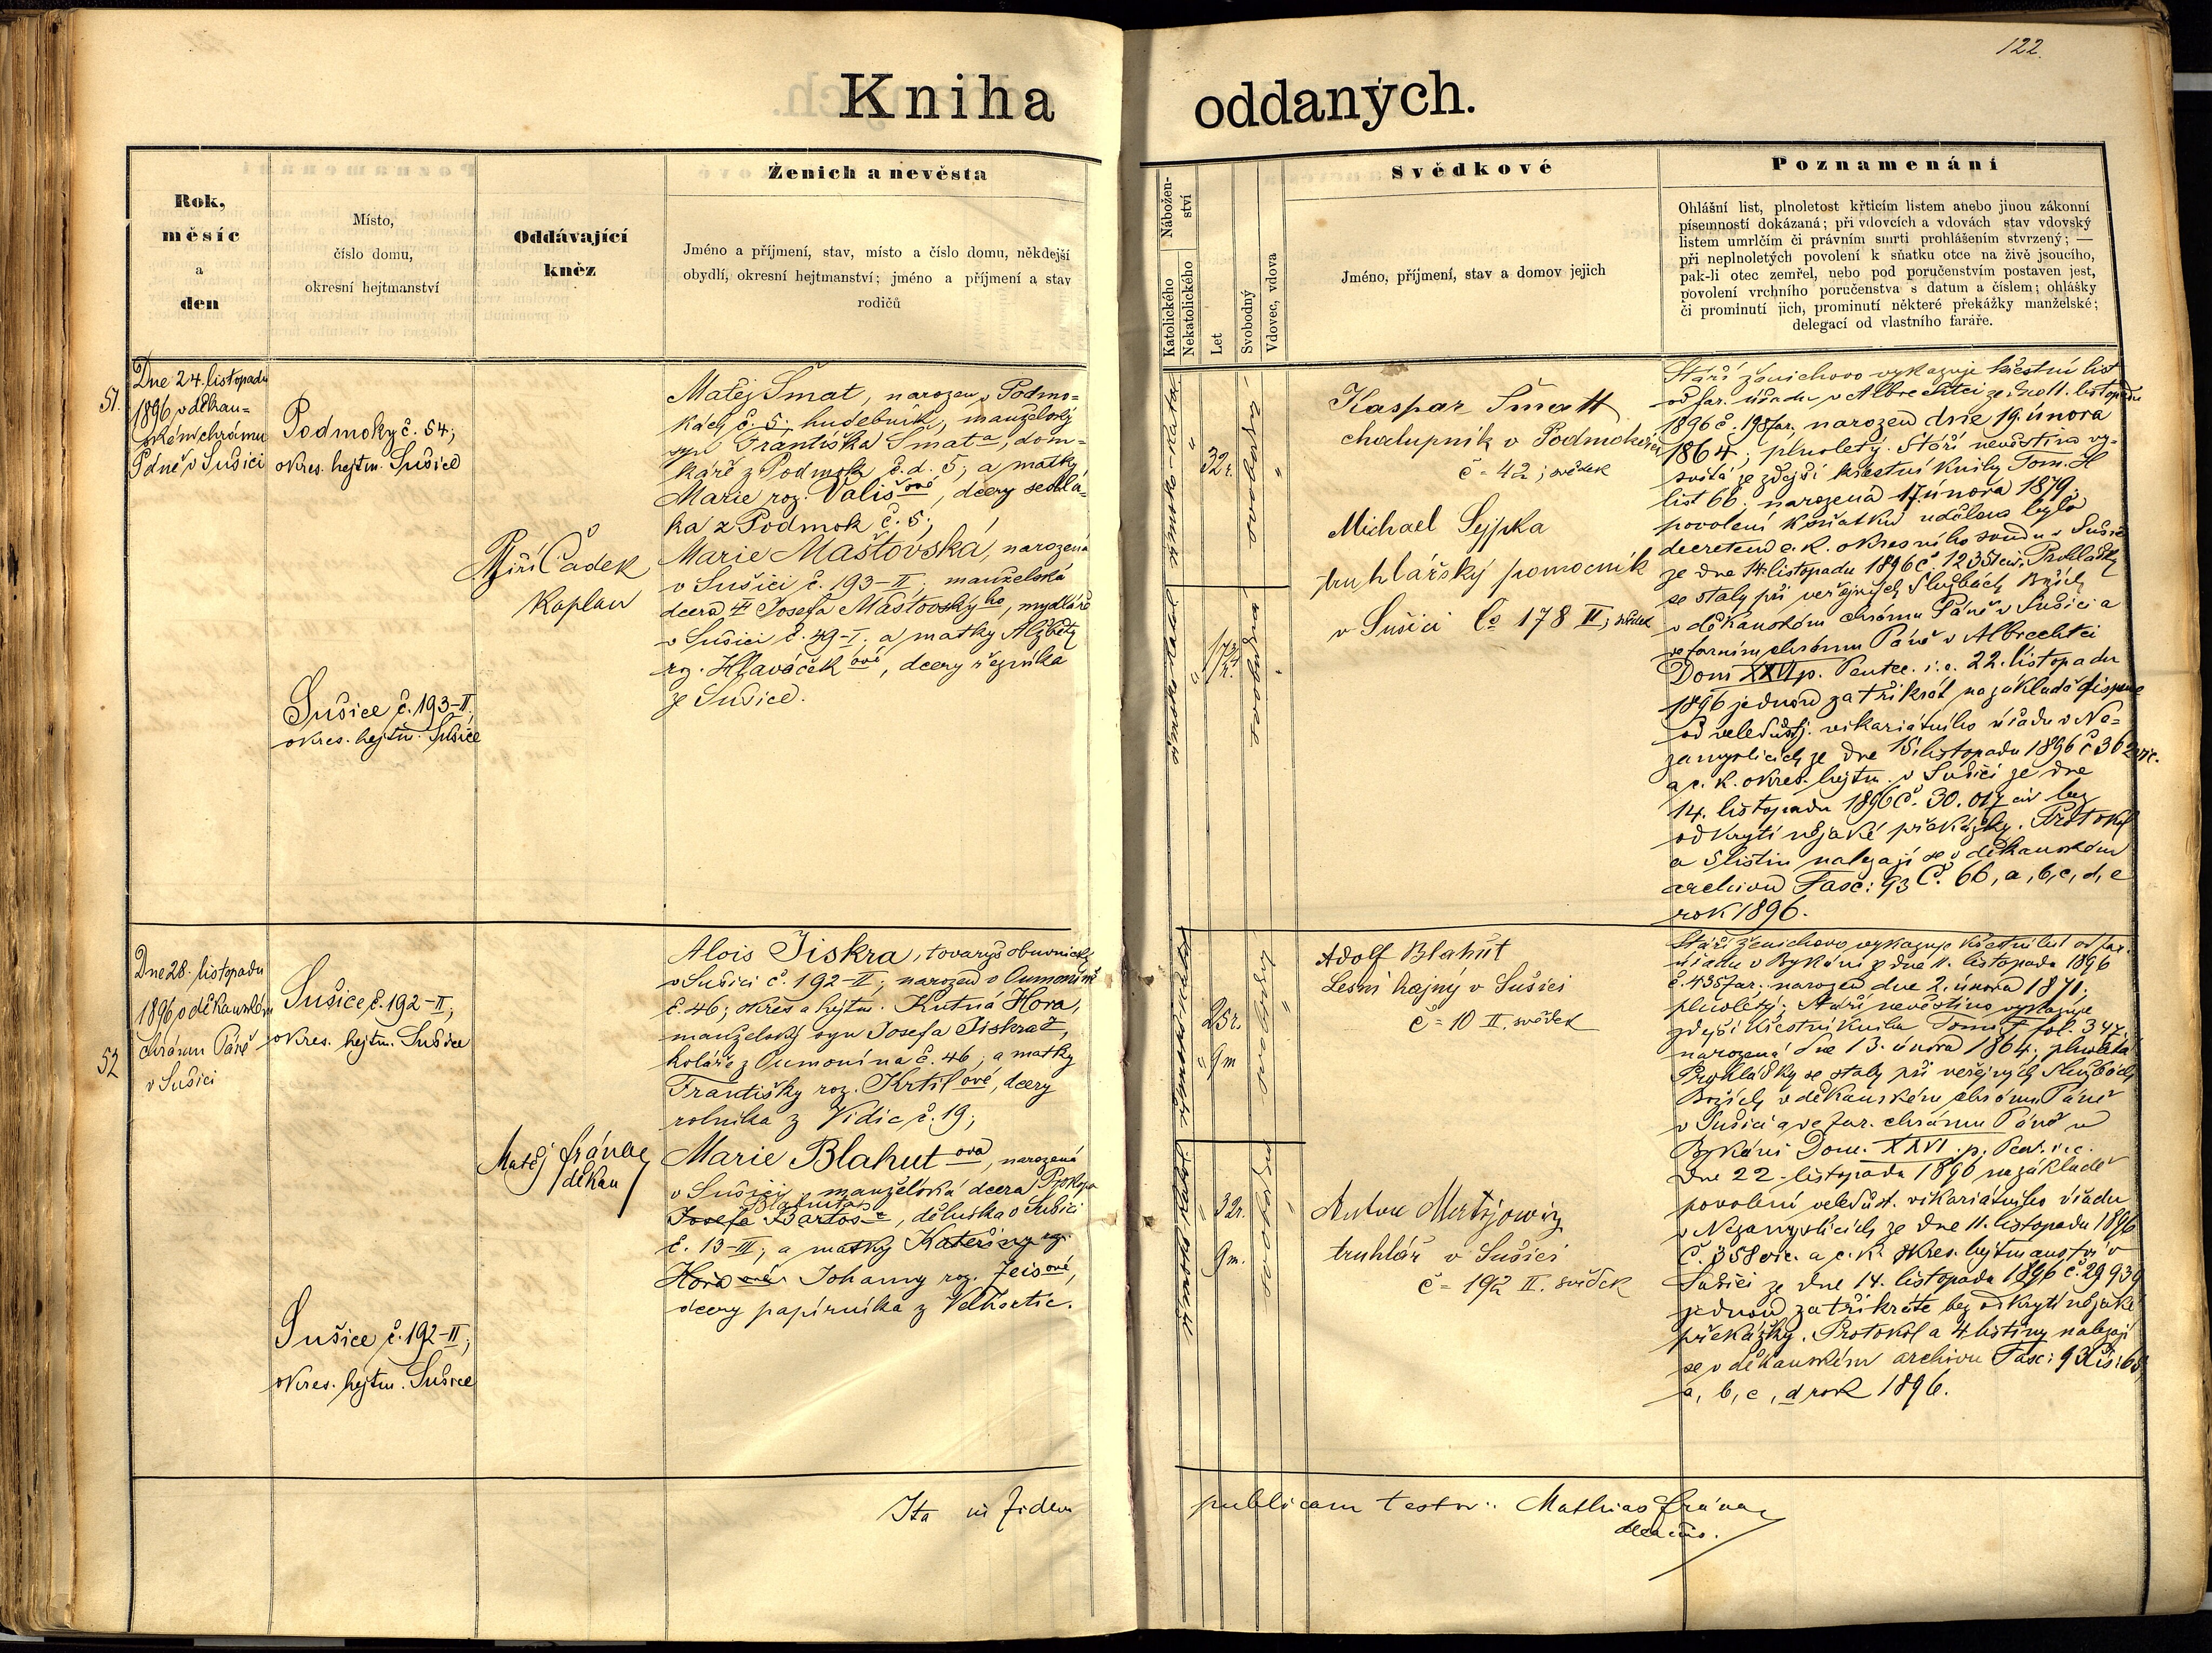 122.
Kniha oddaných.
Rok,
měsíc
a
den
Místo,
číslo domu,
okresní hejtmanství
Oddávající
kněz
Ženich a nevěsta
Jméno a příjmení, stav, místo a číslo domu, někdejší
obydlí, okresní hejtmanství; jméno a příjmení a stav
rodičů
Nábožen-
ství
Katolického
Nekatolického
Let
Svobodný
Vdovec, vdova
Svědkové
Jméno, příjmení, stav a domov jejich
Poznamenání
Ohlášní list, plnoletost křticím listem anebo jinou zákonní
písemností dokázaná; při vdovcích a vdovách stav vdovský
listem umrlčím či právním smrti prohlášením stvrzený; —
při neplnoletých povolení k sňatku otce na živě jsoucího,
pak-li otec zemřel, nebo pod poručenstvím postaven jest,
povolení vrchního poručenstva s datum a číslem; ohlášky
či prominutí jich, prominutí některé překážky manželské;
delegací od vlastního faráře.
51.
Dne 24. listopadu
1896 v děkan-
ském chrámu
Páně v Sušici
Podmoky č. 54;
okres. hejtm. Sušice
Sušice č. 193-II;
okres. hejtm. Sušice
Jiří Čadek
Kaplan
Matěj Šmat, narozen v Podmo-
kách č. 5. hudebník, manželský
syn Františka Šmata, dom-
káře z Podmok č. d. 5; a matky
Marie roz. Vališové, dcery sedlá-
ka z Podmok č. 5;
Marie Maštovská, narozená
v Sušici č. 193-II; manželská
dcera Josefa Maštovského, mydláře
v Sušici č. 49-I. a matky Alžběty
roz. Hlaváčkové, dcery řezníka
ze Sušice.
římsko-katol.
32 r.
svobodný
římsko-katol.
17 r.
svobodná
Kaspar Šmatt
chalupník v Podmokách
č = 42; svědek
Michael Sejpka
truhlářský pomocník
v Sušici čo 178 II; svědek
Stáří ženichovo vykazuje křestní list
od far. úřadu v Albrechtci ze dne 11. listopadu
1896 č. 198/far. narozen dne 19. února
1864; plnoletý. Stáří nevěstino vy-
svítá ze zdejší křestní knihy Tom. H
list 66; narozená 17 února 1879;
povolení k sňatku uděleno bylo
decretem c. k. okresního soudu v Sušici
ze dne 14. listopadu 1896 č. 12351 civ. Prohlášky
se staly při veřejných Službách Božích
v děkanském chrámu Páně v Sušici a
ve farním chrámu Páně v Albrechtci
Dom XXVI p. Pentec. i. e. 22. listopadu
1896 jednou za třikrát na základě dispense
od veledůst. vikariátního úřadu v Ne-
zamyslicích ze dne 15. listopadu 1896 č 362 vic.
a c. k. okres. hejtm. v Sušici ze dne
14. listopadu 1896 č. 30.017 civ bez
odkrytí nějaké překážky. Protokol
a 5 listin nalezají se v děkanském
archivu Fasc: 93 Č. 66, a, b, c, d, e
rok 1896.
52
Dne 28. listopadu
1896 v děkanském
chrámu Páně
v Sušici
Sušice č. 192-II;
okres. hejtm. Sušice
Sušice č. 192-II;
okres. hejtm. Sušice
Matěj Fránac
děkan
Alois Jiskra, tovaryš obuvnický
v Sušici č. 192-II; narozen v Oumoníně
č. 46; okres a hejtm. Kutná Hora,
manželský syn Josefa Jiskra,
koláře z Oumonína č. 46; a matky
Františky roz. Krtilové, dcery
rolníka z Vidic č. 19;
Marie Blahutová, narozená
v Sušici, manželská dcera Prokopa
Blahuta
Josefa Bartoše, dělníka v Sušici
č. 13-III; a matky Kateřiny roz.
Horové Johanny roz. Zeisové,
dcery papírníka z Velhartic.
římsko-katol.
25 r.
9 m
svobodný
římsko-katol.
32 r.
9 m.
svobodná
Adolf Blahut
Lesní hajný v Sušici
č = 10 II. svědek
truhlář v Sušici
č = 192 II. svědek
Stáří ženichovo vykazuje křestní list od far.
úřadu v Bykáni z dne 11. listopadu 1896
č. 435 far. narozen dne 2. února 1871.
plnoletý; Stáří nevěstino vykazuje
zdejší křestní kniha Tom. F fol. 347.
narozená dne 13. února 1864; plnoletá
Prohlášky se staly při veřejných Službách
Božích v děkanském chrámu Páně
v Sušici a ve far. chrámu Páně v
Bykáni Dom. XXVI. p. Pent. i. e.
dne 22. listopadu 1896 na základě
povolení veledůst. vikariátního úřadu
v Nezamyslicích ze dne 11. listopadu 1896
Č. 358 vic. a c. k. okres. hejtmanství v
Sušici ze dne 14. listopadu 1896 č. 29939
jednou za třikráte bez odkrytí nějaké
překážky. Protokol a 4 listiny nalezají
se v děkanském archivu Fasc: 93
a, b, c, d rok 1896.
Ita in fidem publicam testor: Mathias Fránac
decanus.